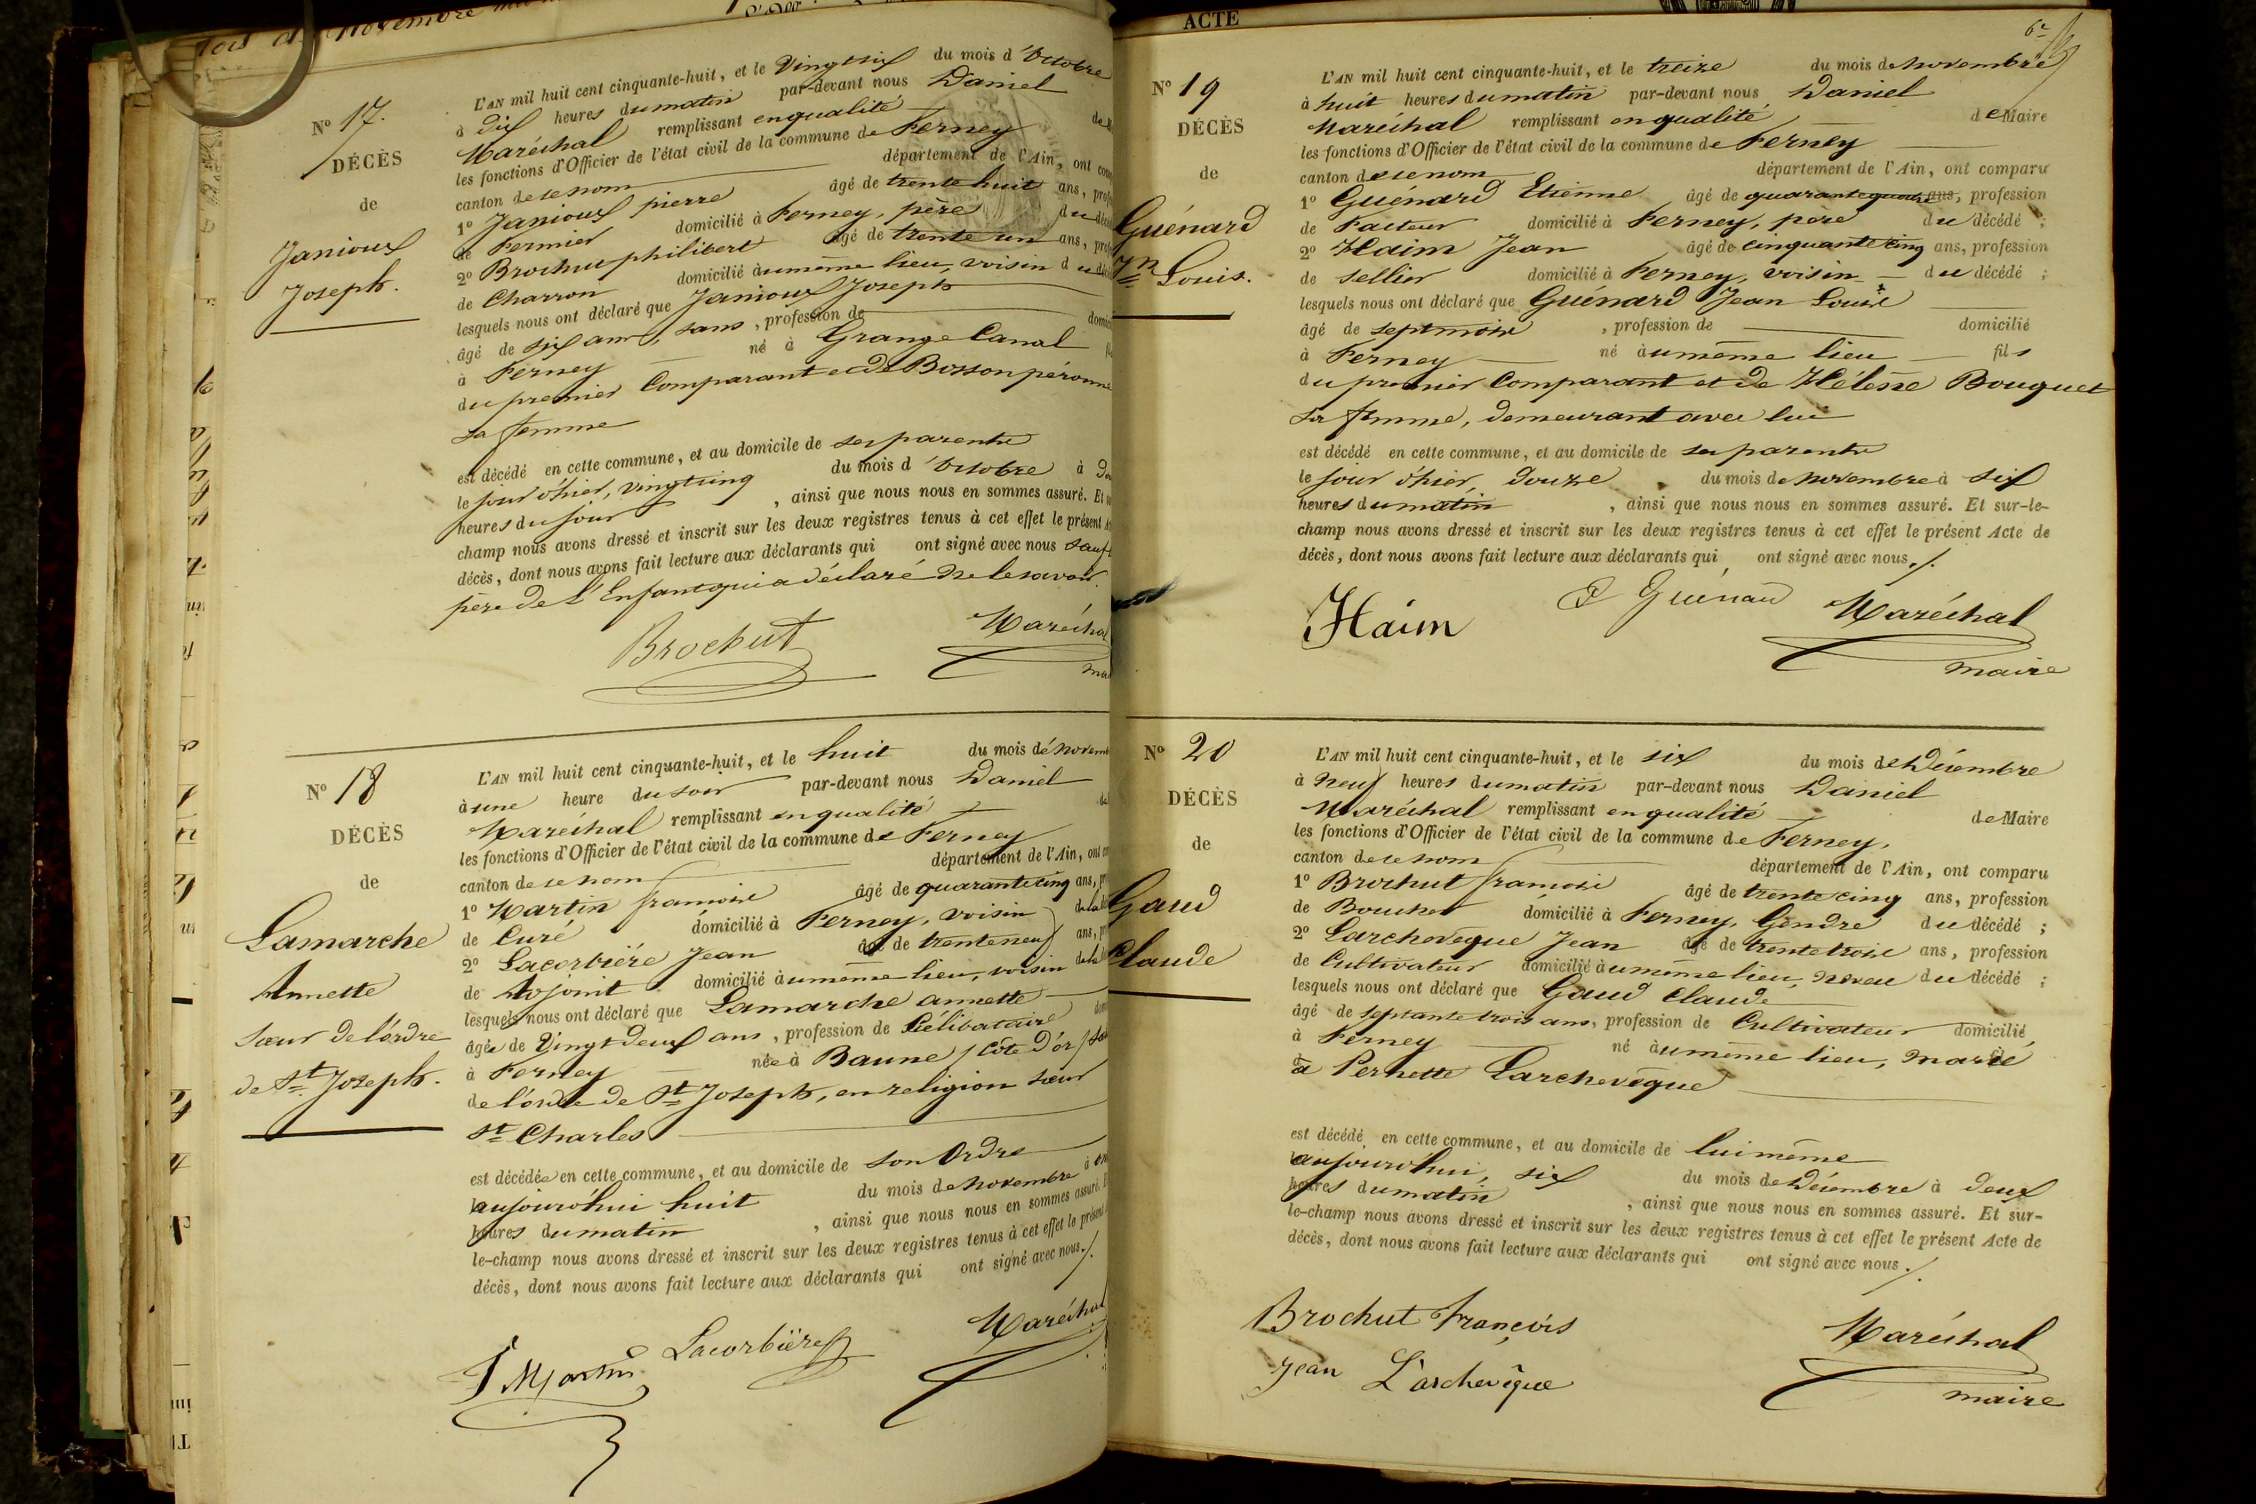 N° 17.
DÉCÈS
de
Janioux
Joseph.
L'AN mil huit cent cinquante-huit, et le Vingt six du mois d'Octobre
à dix heures du matin par-devant nous Daniel
Maréchal remplissant en qualité
les fonctions d'Officier de l'état civil de la commune de Ferney
canton de ce nom département de l'Ain, ont
1° Janioux pierre âgé de trente huit ans,
de Fermier domicilié à Ferney, père du
2° Brochu philibert âgé de trente un ans,
de Charron domicilié au même lieu, voisin du
lesquels nous ont déclaré que Janioux Joseph
âgé de six ans, sans, profession de
à Ferney né à Grange Canal
du premier Comparant et de Bosson péronne
sa femme
est décédé en cette commune, et au domicile de ses parents
le jour d'hier, vingt cinq du mois d'Octobre à
heures du jour, ainsi que nous nous en sommes assuré. Et
champ nous avons dressé et inscrit sur les deux registres tenus à cet effet le présent
décès, dont nous avons fait lecture aux déclarants qui ont signé avec nous sauf
père de l'Enfant qui a déclaré ne le savoir.
Brochut
Maréchal
N° 18
DÉCÈS
de
Lamarche
Annette
sœur de l'ordre
de St Joseph.
L'AN mil huit cent cinquante-huit, et le huit du mois de
à une heure du soir par-devant nous Daniel
Maréchal remplissant en qualité
les fonctions d'Officier de l'état civil de la commune de Ferney
canton de ce nom département de l'Ain, ont
1° Martin françois âgé de quarante cinq ans,
de Curé domicilié à Ferney, voisin de la
2° Lacorbière Jean âgé de trente neuf ans,
de Adjoint domicilié au même lieu, voisin de la
lesquels nous ont déclaré que Lamarche annette
âgée de Vingt deux ans, profession de Célibataire
à Ferney née à Baune (Côte d'or)
de l'ordre de St Joseph, en religion sœur
St Charles
est décédée en cette commune, et au domicile de son Ordre
aujourd'hui huit du mois de Novembre à
heures du matin, ainsi que nous nous en sommes assuré.
le-champ nous avons dressé et inscrit sur les deux registres tenus à cet effet le présent
décès, dont nous avons fait lecture aux déclarants qui ont signé avec nous./.
F Martin
Lacorbière
Maréchal
ACTE
6e
N° 19
DÉCÈS
de
Guénard
Jn Louis.
L'AN mil huit cent cinquante-huit, et le treize du mois de Novembre
à huit heures du matin par-devant nous Daniel
Maréchal remplissant en qualité de Maire
les fonctions d'Officier de l'état civil de la commune de Ferney
canton de ce nom département de l'Ain, ont comparu
1° Guénard Etienne âgé de quarante quatre ans, profession
de Facteur domicilié à Ferney, père du décédé ;
2° Haim Jean âgé de cinquante cinq ans, profession
de sellier domicilié à Ferney, voisin du décédé ;
lesquels nous ont déclaré que Guénard Jean Louis
âgé de sept mois, profession de domicilié
à Ferney né au même lieu fils
du premier Comparant et de Hélène Bouquet
sa femme, demeurant avec lui
est décédé en cette commune, et au domicile de ses parents
le jour d'hier, douze du mois de Novembre à six
heures du matin, ainsi que nous nous en sommes assuré. Et sur-le-
champ nous avons dressé et inscrit sur les deux registres tenus à cet effet le présent Acte de
décès, dont nous avons fait lecture aux déclarants qui ont signé avec nous./.
Haim
E Guénard
Maréchal
maire
N° 20
DÉCÈS
de
Gaud
Claude
L'AN mil huit cent cinquante-huit, et le six du mois de Décembre
à neuf heures du matin par-devant nous Daniel
Maréchal remplissant en qualité de Maire
les fonctions d'Officier de l'état civil de la commune de Ferney,
canton de ce nom département de l'Ain, ont comparu
1° Brochut françois âgé de trente cinq ans, profession
de Boucher domicilié à Ferney, Gendre du décédé ;
2° Larchevêque Jean âgé de trente trois ans, profession
de Cultivateur domicilié au même lieu, neveu du décédé ;
lesquels nous ont déclaré que Gaud Claude
âgé de septante trois ans, profession de Cultivateur domicilié
à Ferney né au même lieu, marié
à Pernette Larchevêque
est décédé en cette commune, et au domicile de lui même
aujourd'hui, six du mois de Décembre à deux
heures du matin, ainsi que nous nous en sommes assuré. Et sur-
le-champ nous avons dressé et inscrit sur les deux registres tenus à cet effet le présent Acte de
décès, dont nous avons fait lecture aux déclarants qui ont signé avec nous./.
Brochut François
Jean L'archevêque
Maréchal
maire